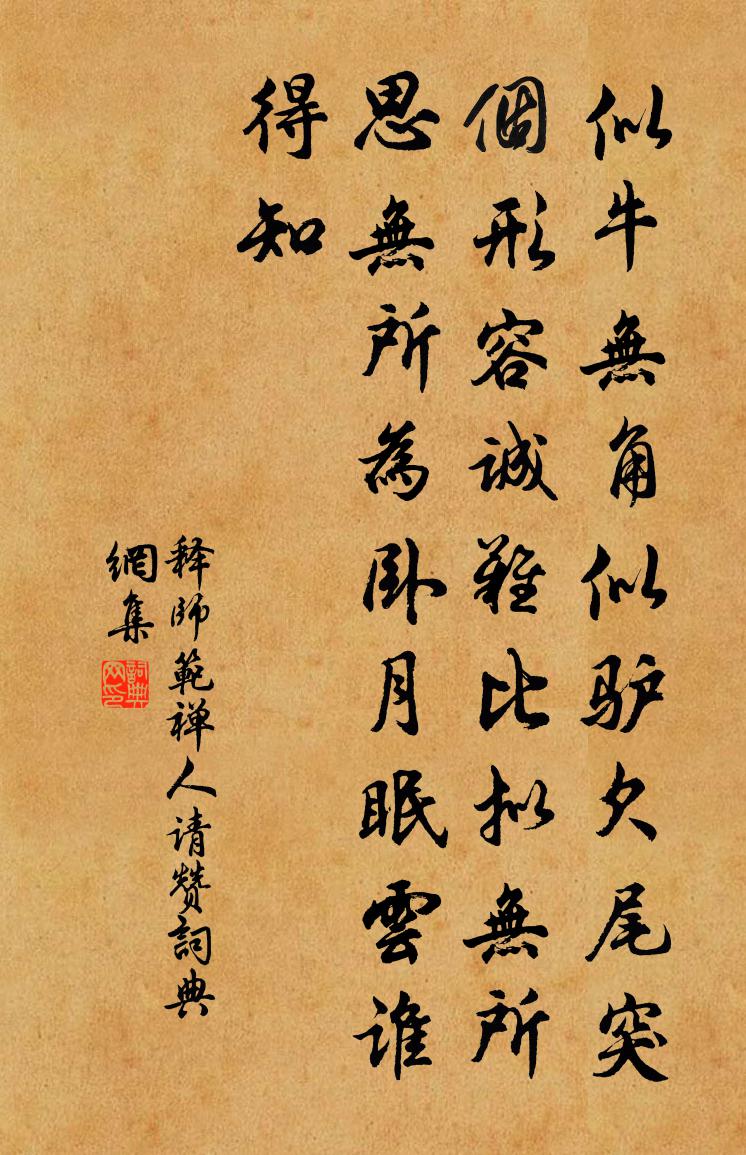 似牛無角似驴欠尾突
個形容誠難比拟無所
思無所為卧月眠雲誰
得知
释師範禅人请赞詞典
網集
詞典
网印